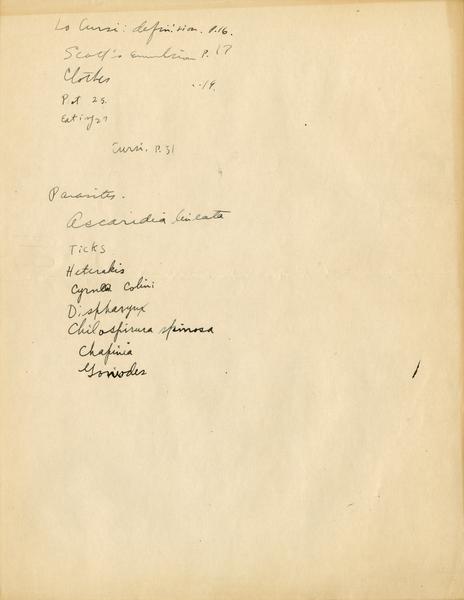 Lo Cursi: definision. P.16.
Scott's emulsion P. 17
Clothes ..19.
Pat 25.
Eating 27
Cursi. P. 31
Parasites.
Ascaridia lineata
Ticks
Heterakis
Cyrnea Colini
Dispharynx
Chilospirura spinosa
Chapinia
Goniodes